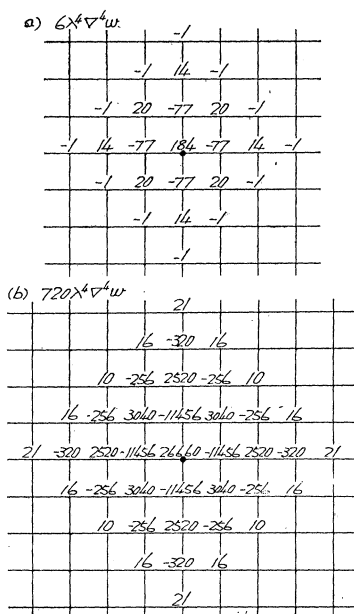 a) 6λ⁴∇⁴w.
-1
-1 14 -1
-1 20 -77 20 -1
-1 14 -77 184 -77 14 -1
-1 20 -77 20 -1
-1 14 -1
-1
(b) 720λ⁴∇⁴w
21
16 -320 16
10 -256 2520 -256 10
16 -256 3040 -11456 3040 -256 16
21 -320 2520 -11456 26660 -11456 2520 -320 21
16 -256 3040 -11456 3040 -256 16
10 -256 2520 -256 10
16 -320 16
21